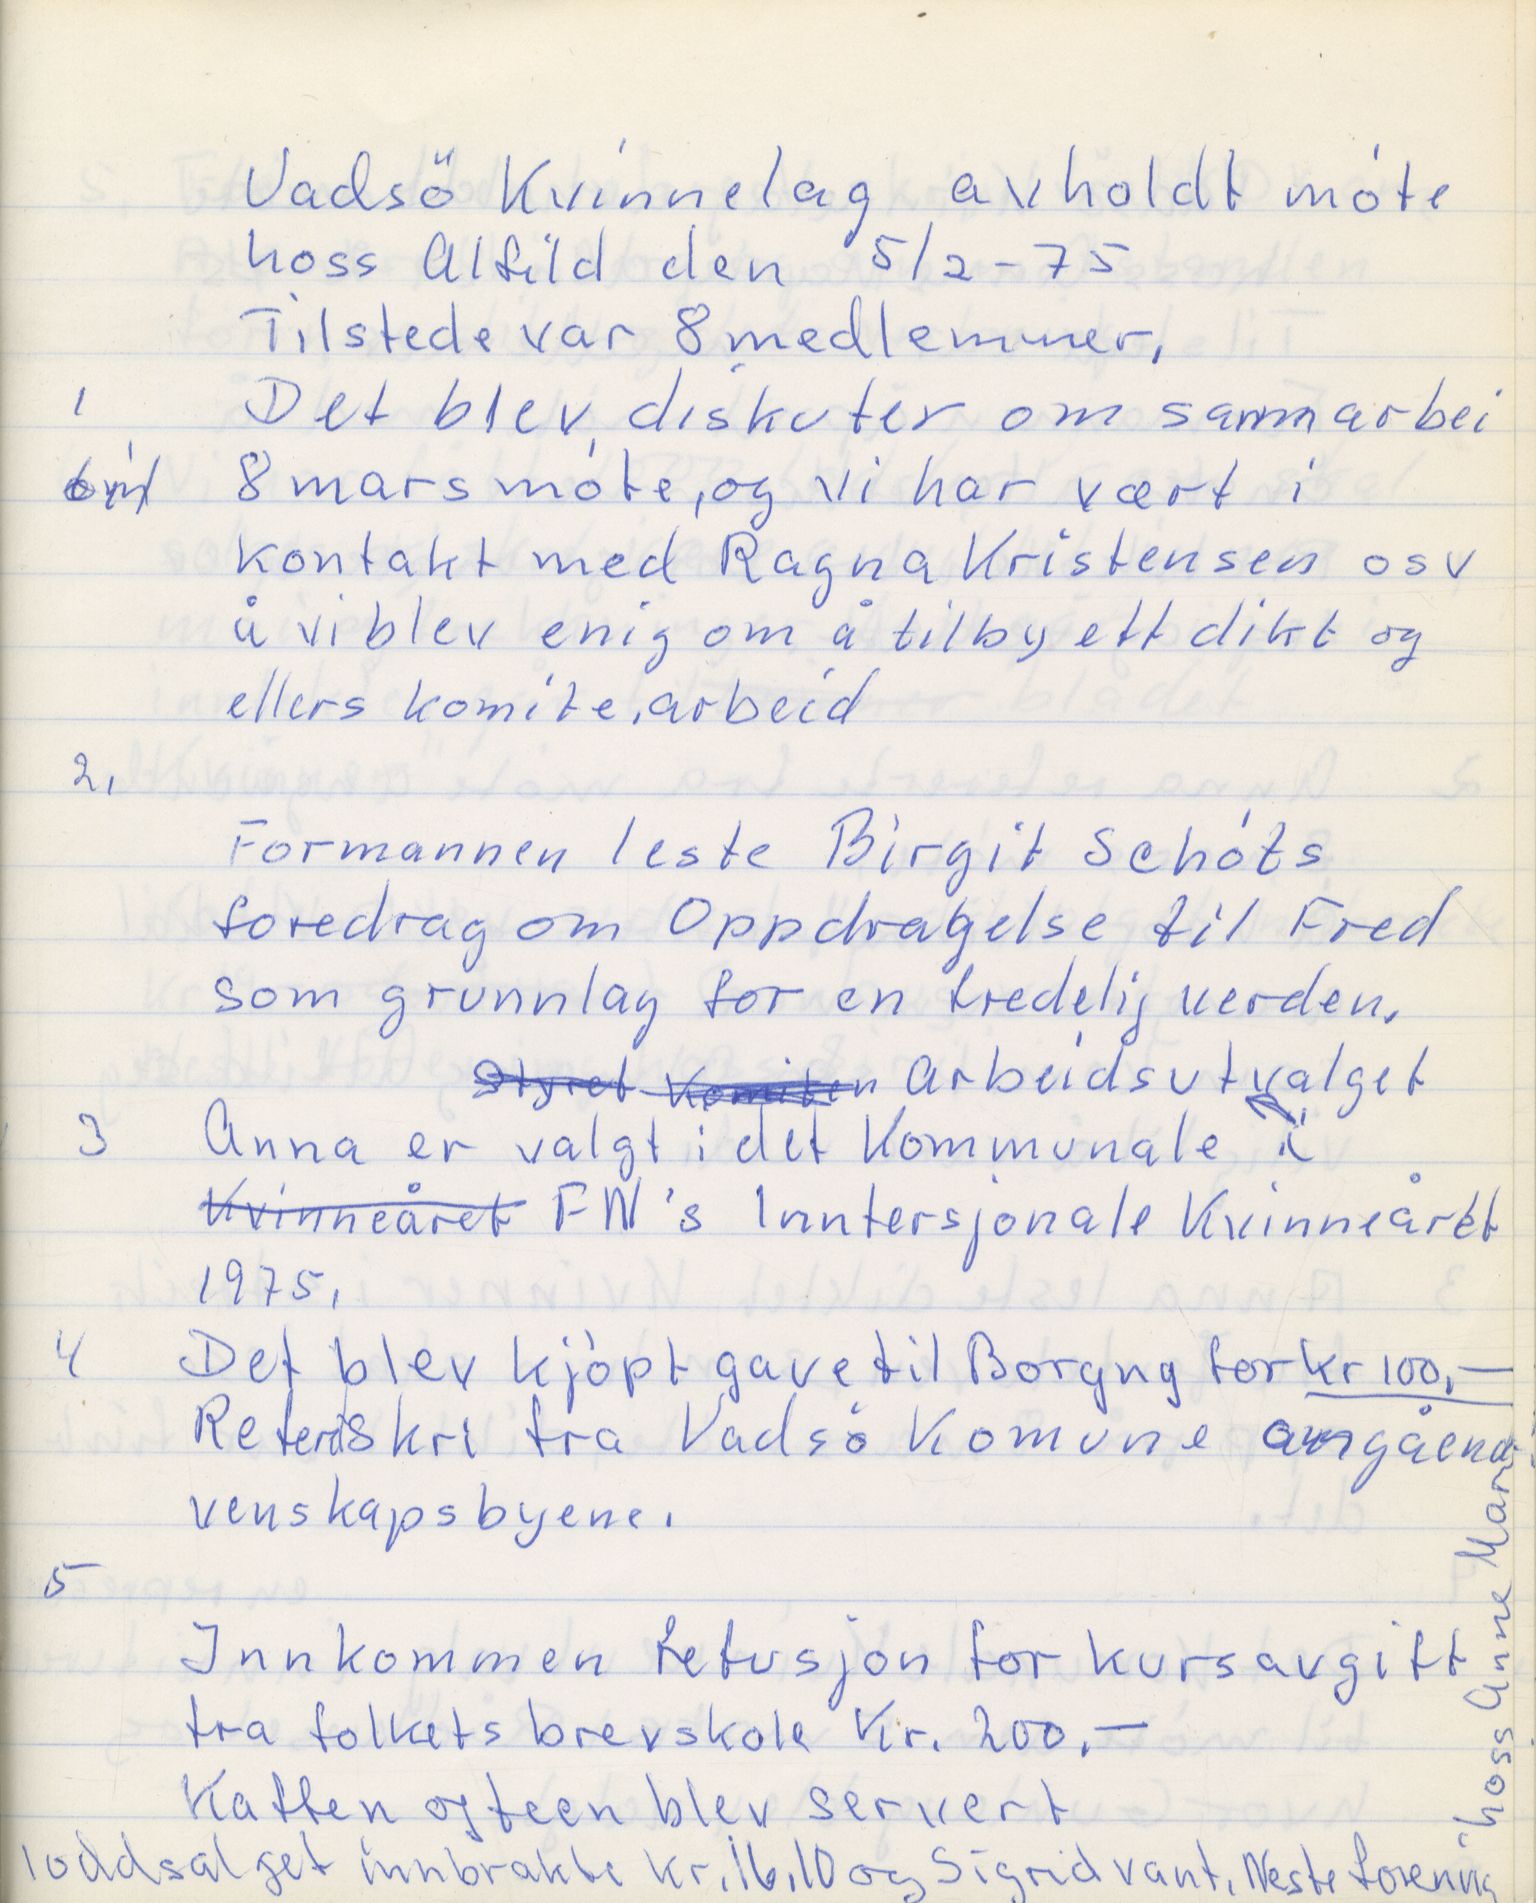 Vadsö Kvinnelag avholdt móte
hoss Alfild den 5/2-75
Tilstede var 8 medlemmer.
1 Det blev diskuter om sammarbei
8 mars móte, og vi har vært i
kontakt med Ragna Kristensen osv
å vi blev enig om å tilby ett dikt og
ellers komite.arbeid
2.
Formannen leste Birgit Schóts
foredrag om Oppdragelse til Fred
som grunnlag for en fredelig verden.
Styret Komiten Arbeidsutvalget
3 Anna er valgt i det Kommunale i
Kvinneåret FN's Inntersjonale Kvinneåret
1975.
4 Det blev kjópt gave til Borgny for kr 100,-
Referdskri fra Vadsó Komune angåend
venskapsbyene.
5
Innkommen Refusjon for kursavgift
fra folkets brevskole Kr. 200.-
Kaffen og teen blev servert
loddsalget innbrakte kr. 16.10 og Sigrid vant. Neste forening
hoss Anne Mari